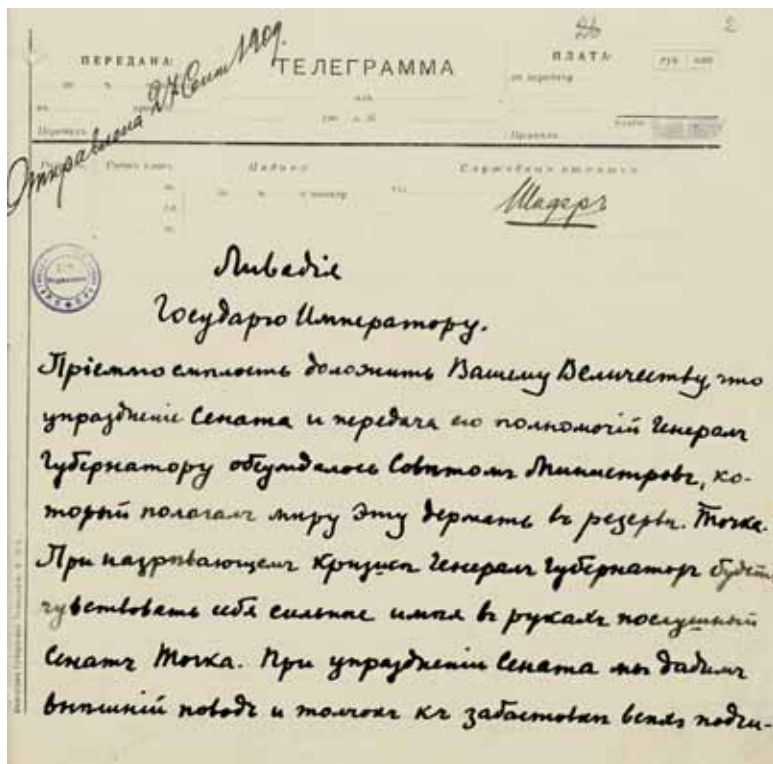 26 2
Отправлена 27 Сент 1909.
ПЕРЕДАНА: ТЕЛЕГРАММА ПЛАТА:
руб. коп.
Подано Служебныя отмѣтки
Шифръ
Ливадія
Государю Императору.
Пріемлю смѣлость доложить Вашему Величеству, что
упраздненіе Сената и передача его полномочій Генералъ
Губернатору обсуждалось Совѣтомъ Министровъ, ко-
торый полагалъ мѣру эту держать въ резервѣ. Точка.
При назрѣвающемъ кризисѣ Генералъ Губернаторъ будетъ
чувствовать себя сильнѣе имѣя въ рукахъ послушный
Сенатъ Точка. При упраздненіи Сената мы дадимъ
внѣшній поводъ и толчокъ къ забастовкѣ всѣхъ подчи-